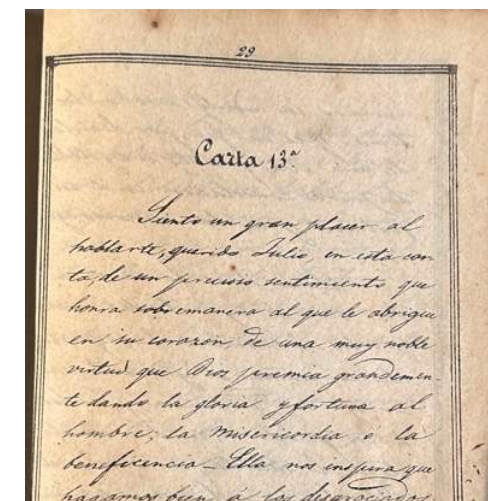 29
Carta 13ª
Siento un gran placer al
hablarte, querido Julio, en esta car
ta, de un precioso sentimiento que
honra sobremanera al que le abrigue
en su corazon de una muy noble
virtud que Dios premia grandemen-
te dando la gloria y fortuna al
hombre; la misericordia ó la
beneficencia_ Ella nos inspira que
hagamos bien á los desgraciados